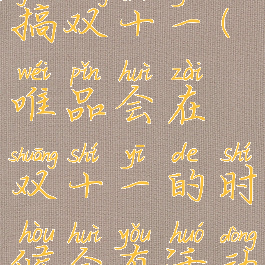 搞双十一(
wéi pǐn huì zài
唯品会在
shuāng shí yī de shí
双十一的时
hòu huì yǒu huó dòng
候会有活动